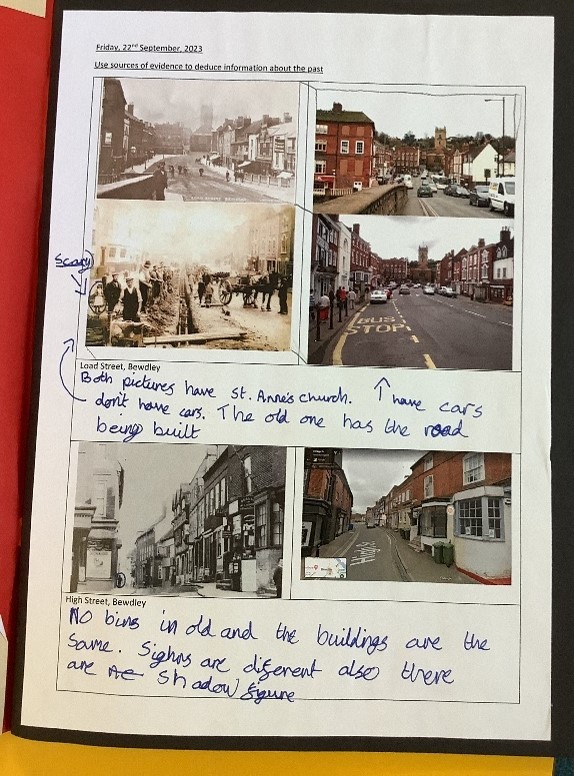 Friday, 22nd September, 2023
Use sources of evidence to deduce information about the past
Scary
BUS
STOP
Load Street, Bewdley
Both pictures have St. Anne's church. ↑ have cars
don't have cars. The old one has the road
being built
High St
High Street, Bewdley
No bins in old and the buildings are the
Same. Sighns are diferent also there
are a shadow figure